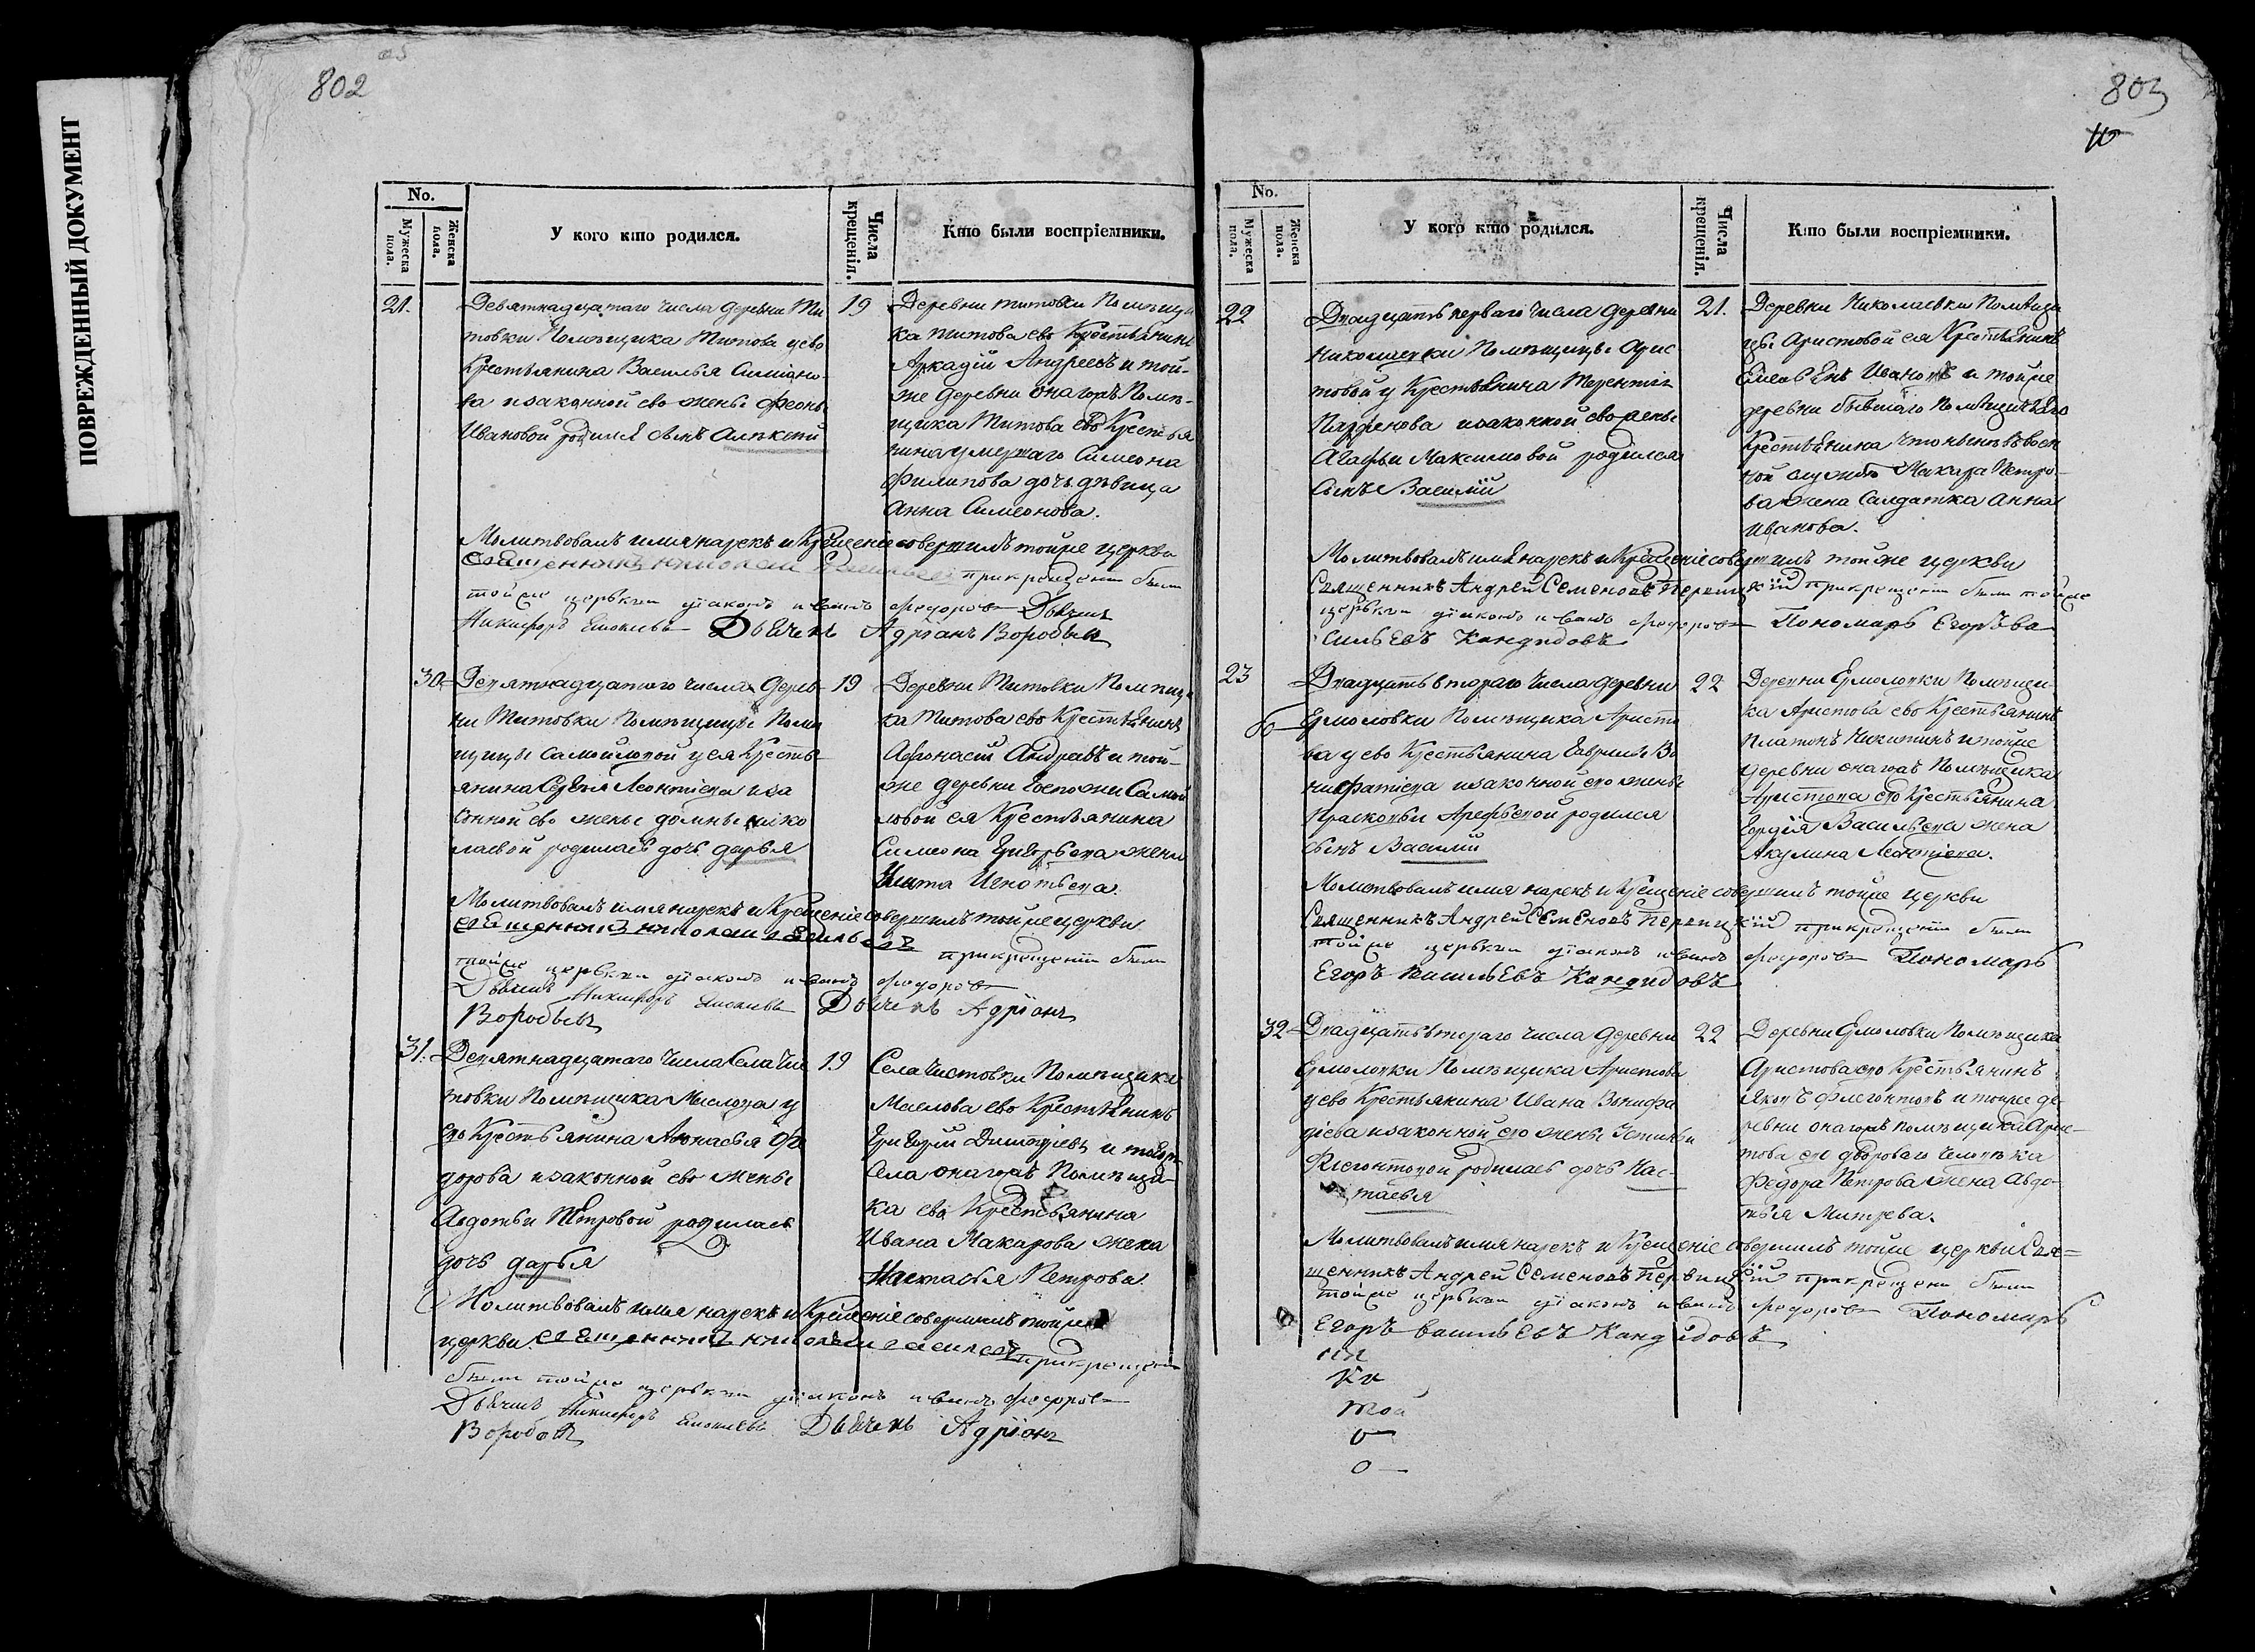 ПОВРЕЖДЕННЫЙ ДОКУМЕНТ
802
No.
Мужеска пола.
Женска пола.
У кого кто родился.
Числа крещенія.
Кто были воспріемники.
21.
Девятнадцатаго числа деревни Ти
товки Помѣщика Титова у ево
Крестьянина Василья Симіоно
ва и законной ево жены Феоны
Ивановой родился сынъ Алѣксѣй
19
Деревни титовки Помѣщи
ка титова ево Крестьянинъ
Аркадій Андреевъ и той-
же деревни онагожъ Помѣ-
щика Титова ево Крестья
нина умершаго Симеона
Филипова дочь дѣвица
Анна Симеонова.
Молитвовалъ имя нарекъ и Крещеніе совершилъ тойже церкви
священникъ николай при крещеніи были
тойже церкви діаконъ иванъ федоровъ Дьячекъ
Никифоръ Дьячекъ Адріанъ Воробьевъ
30.
Девятнадцатаго числа дерев
ни Титовки Помѣщицы Помѣ
щицы самойловой у ея Кресть
янина Сергѣя Леонтіева и за
конной ево жены домны нико
лаевой родилась дочь дарья
19
Деревни Титовки Помѣщи
ка Титова ево Крестьянинъ
Афонасій Андреевъ и той-
же деревни Госпожи Самой
ловой ея Крестьянина
Симеона Григорьева жена
Игнатьева
Молитвовалъ имя нарекъ и Крещеніе совершилъ тойже церкви
священникъ николай васильевъ при крещеніи были
тойже церкви діаконъ иванъ федоровъ
Дьячекъ Никифоръ Дьячекъ Адріанъ
Воробьевъ
31.
Девятнадцатаго числа Села Чис
товки Помѣщика Маслова у
ево Крестьянина Афанасья Фе
дорова и законной ево жены
Авдотьи Петровой родилась
дочь дарья
19
Села Чистовки Помѣщика
Маслова ево Крестьянинъ
Григорій Дмитріевъ и тогожъ
Села онагожъ Помѣщи-
ка ево Крестьянина
Ивана Макарова жена
Настасья Петрова
Молитвовалъ имя нарекъ и Крещеніе совершилъ тойже
церкви священникъ николай васильевъ при крещеніи
были тойже церкви діаконъ иванъ федоровъ
Дьячекъ Никифоръ Дьячекъ Адріанъ
Воробьевъ
803
No.
Мужеска пола.
Женска пола.
У кого кто родился.
Числа крещенія.
Кто были воспріемники.
22
Двадцать перваго числа деревни
Николаевки Помѣщицы Арис
товой у Крестьянина Терентія
Парфенова и законной ево жены
Агафьи Максимовой родился
сынъ Василій
21.
Деревни Николаевки Помѣщи
цы Аристовой ея Крестьянинъ
Ивановъ и тойже
деревни бывшаго Помѣщичьяго
Крестьянина что нынѣ въ воен
ной службѣ Макара Петро-
ва жена Салдатка Анна
Иванова.
Молитвовалъ имя нарекъ и Крещеніе совершилъ тойже церкви
Священникъ Андрей Семеновъ при крещеніи были тойже
церкви діаконъ иванъ федоровъ Пономарь Егоръ Ва
сильевъ Кандидовъ
23
Двадцать втораго числа деревни
Ермоловки Помѣщика Аристо
ва у ево Крестьянина Гаврилы Во
нифатіева и законной ево жены
Прасковьи Арефьевой родился
сынъ Василій
22
Деревни Ермоловки Помѣщи-
ка Аристова ево Крестьянинъ
Платонъ Никитинъ и тойже
деревни онагожъ Помѣщика
Аристова ево Крестьянина
Гордѣя Васильева жена
Акулина Леонтіева.
Молитвовалъ имя нарекъ и Крещеніе совершилъ тойже церкви
Священникъ Андрей Семеновъ при крещеніи были
тойже церкви діаконъ иванъ федоровъ Пономарь
Егоръ Васильевъ Кандидовъ
32
Двадцать втораго числа деревни
Ермоловки Помѣщика Аристова
у ево Крестьянина Ивана Вонифа
тіева и законной ево жены Устиньи
Флегонтовой родилась дочь Нас-
тасья
22
Деревни Ермоловки Помѣщика
Аристова ево Крестьянинъ
Яковъ Флегонтовъ и тойже де-
ревни онагожъ помѣщика Арис-
това ево двороваго человѣка
Федора Петрова жена Авдо-
тья Митрева.
Молитвовалъ имя нарекъ и Крещеніе совершилъ тойже церкви Свя=
щенникъ Андрей Семеновъ при крещеніи были
тойже церкви діаконъ иванъ федоровъ Пономарь
Егоръ Васильевъ Кандидовъ